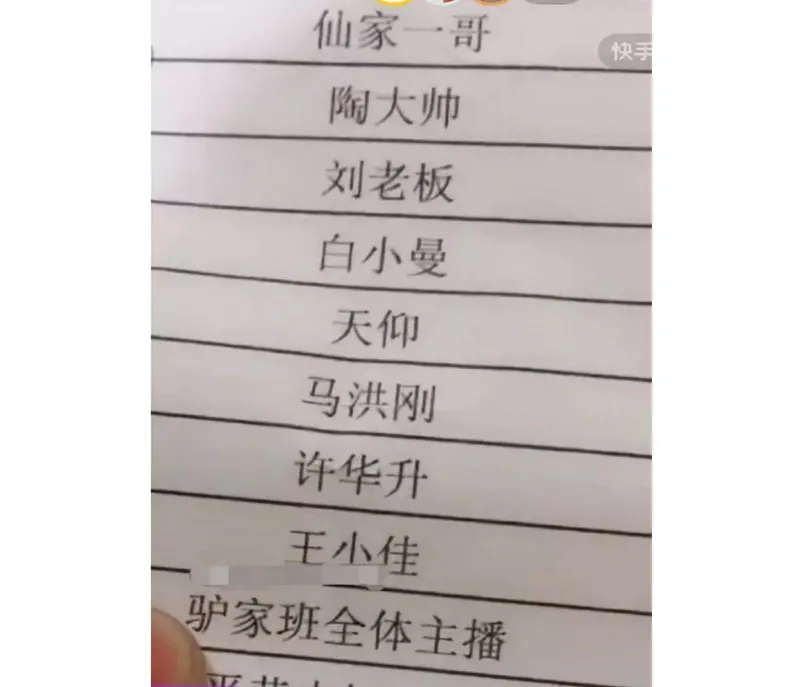 仙家一哥
快手
陶大帅
刘老板
白小曼
天仰
马洪刚
许华升
王小佳
驴家班全体主播